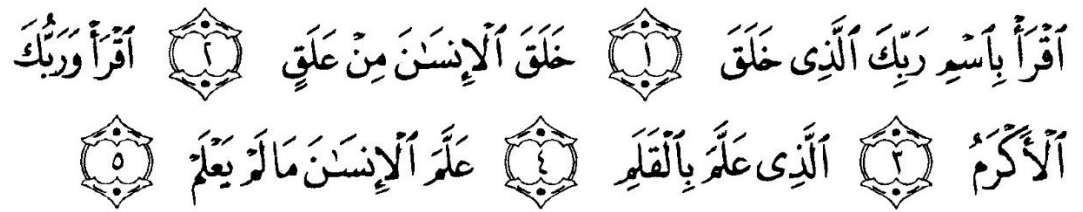 ٱقْرَأْ بِٱسْمِ رَبِّكَ ٱلَّذِى خَلَقَ ١ خَلَقَ ٱلْإِنسَٰنَ مِنْ عَلَقٍ ٢ ٱقْرَأْ وَرَبُّكَ
ٱلْأَكْرَمُ ٣ ٱلَّذِى عَلَّمَ بِٱلْقَلَمِ ٤ عَلَّمَ ٱلْإِنسَٰنَ مَا لَمْ يَعْلَمْ ٥